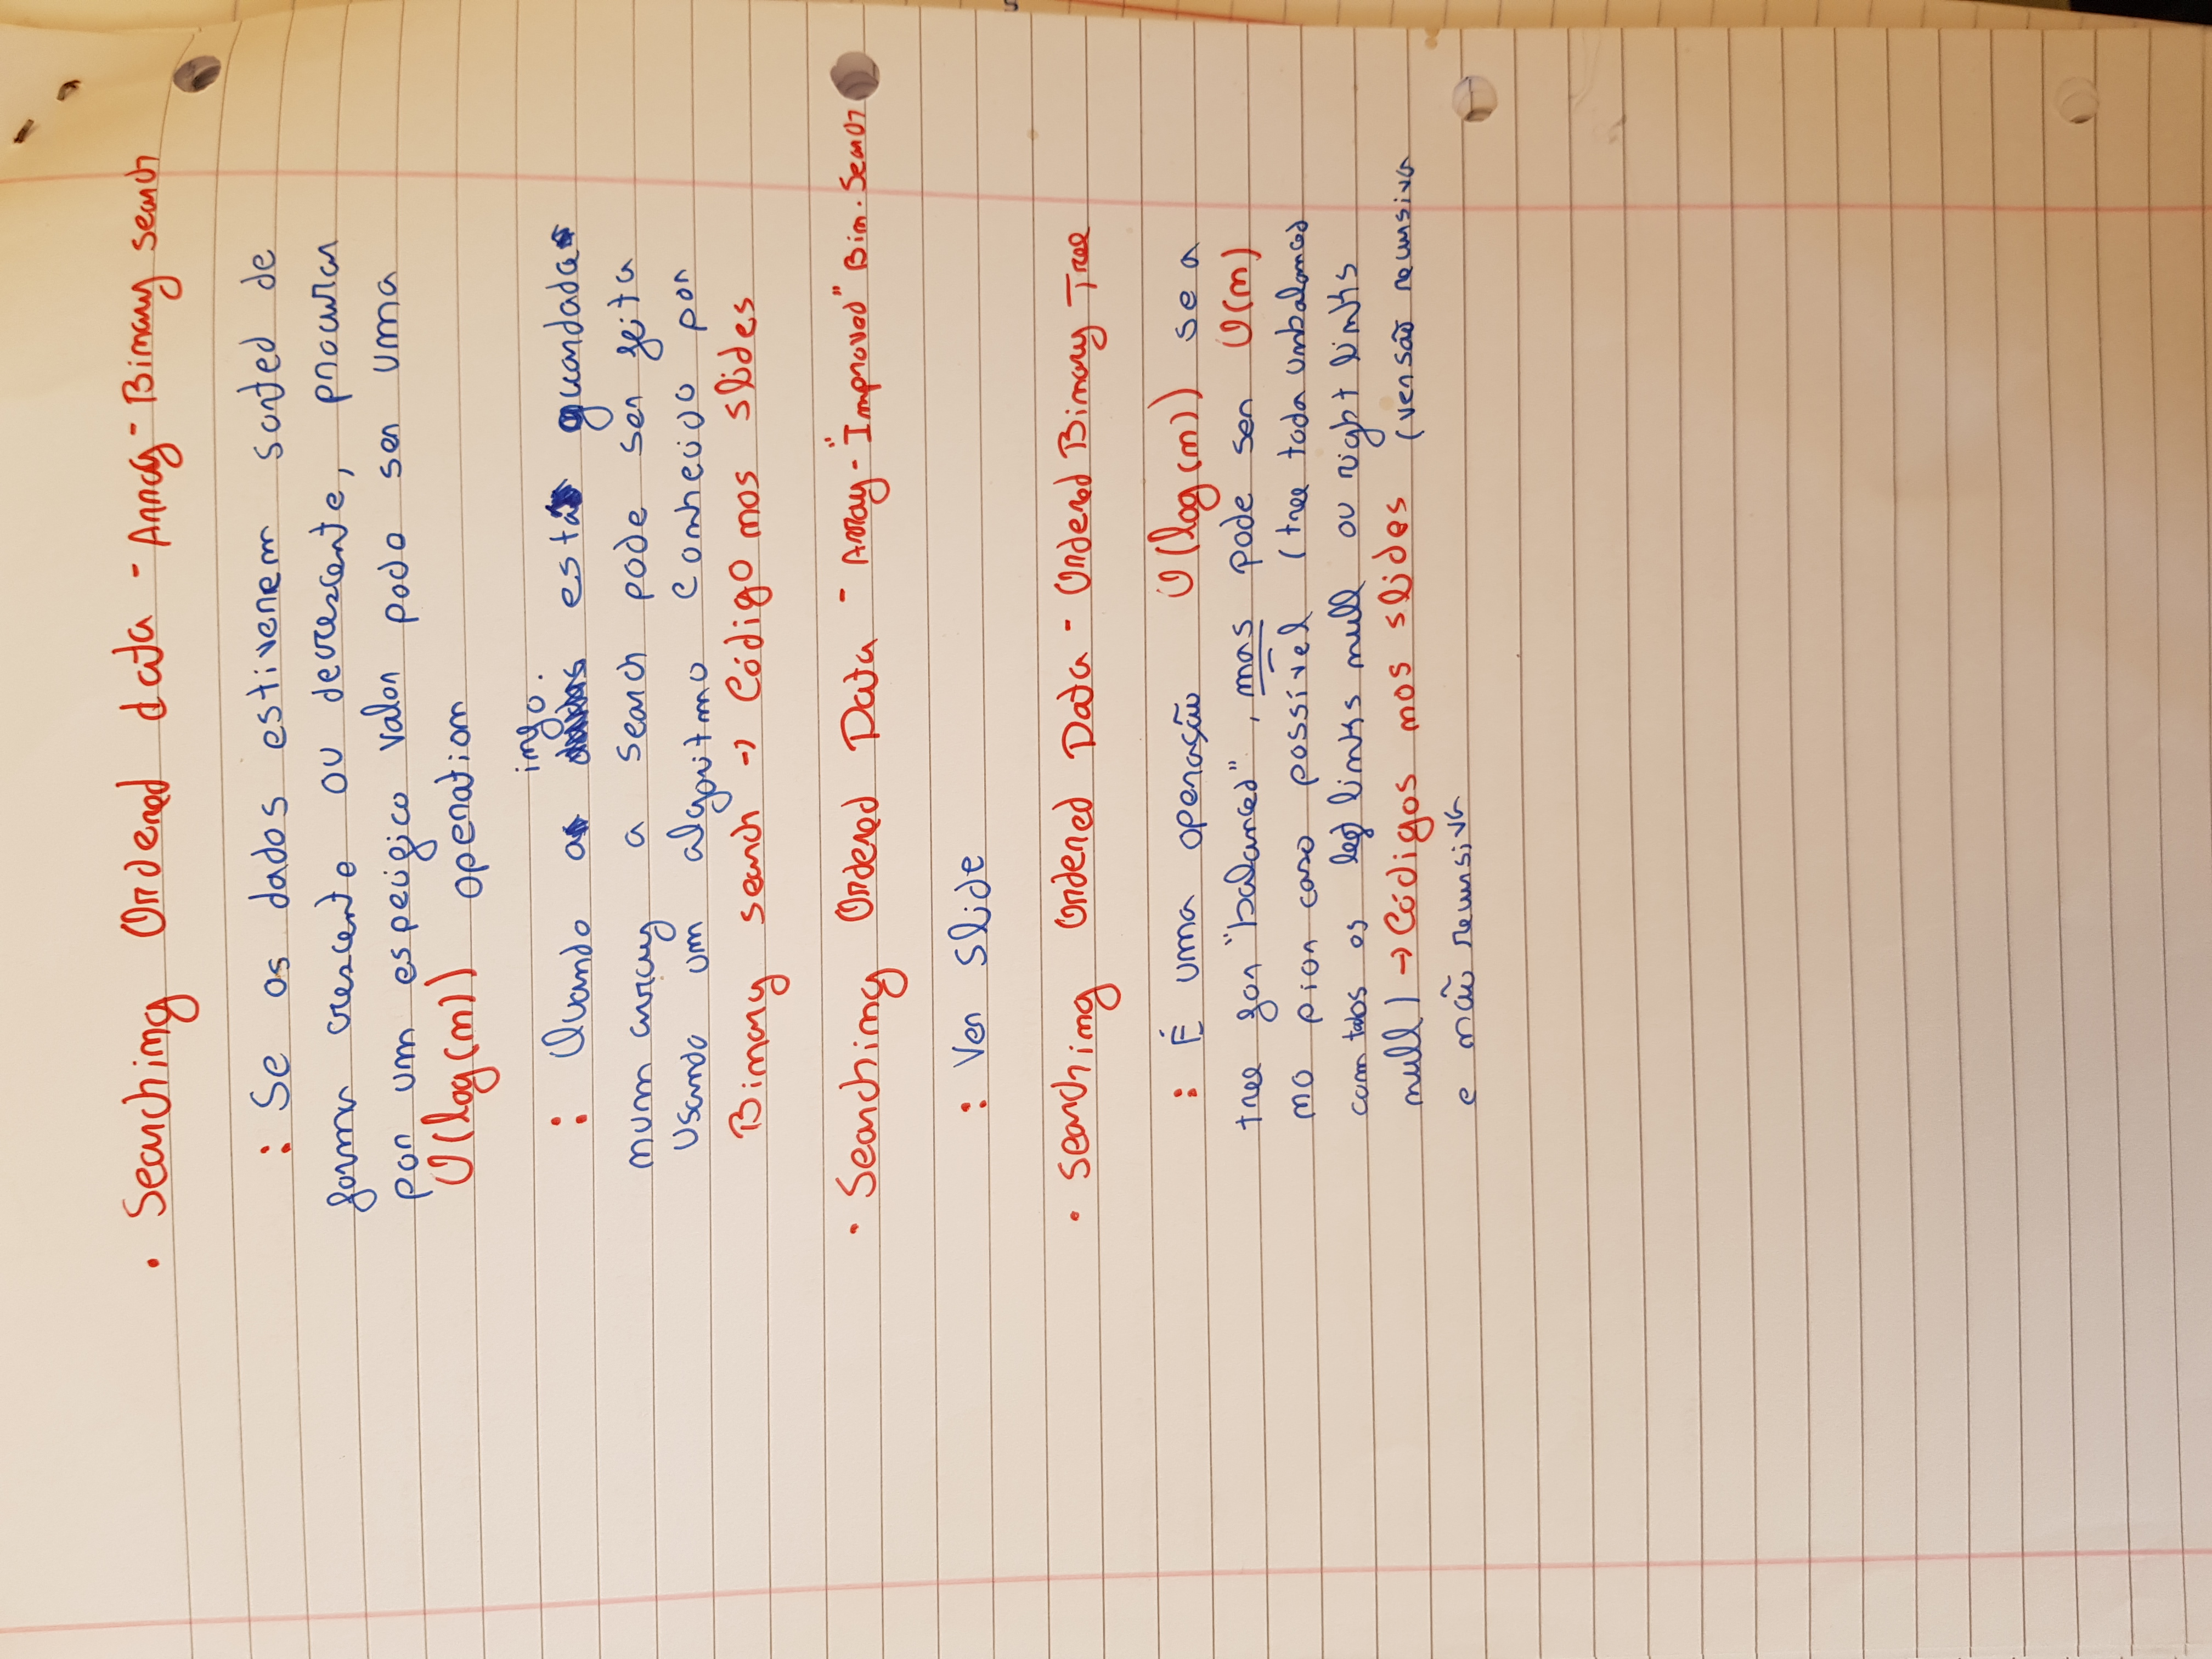 • Searching Ordered data - Array - Binary search
: Se os dados estiverem sorted de
forma crescente ou decrescente, procurar
por um específico valor pode ser uma
O(log(n)) operation
info.
: Quando a está guardada
num array a search pode ser feita
usando um algoritmo conhecido por
Binary search → Código nos slides
• Searching Ordered Data - Array - "Improved" Bin. Search
: Ver slide
• Searching Ordered Data - Ordered Binary Tree
: É uma operação O(log(n)) se a
tree for "balanced", mas pode ser O(n)
no pior caso possível (tree toda unbalanced
com todos os left links null ou right links
null) → Códigos nos slides (versão recursiva
e não recursiva